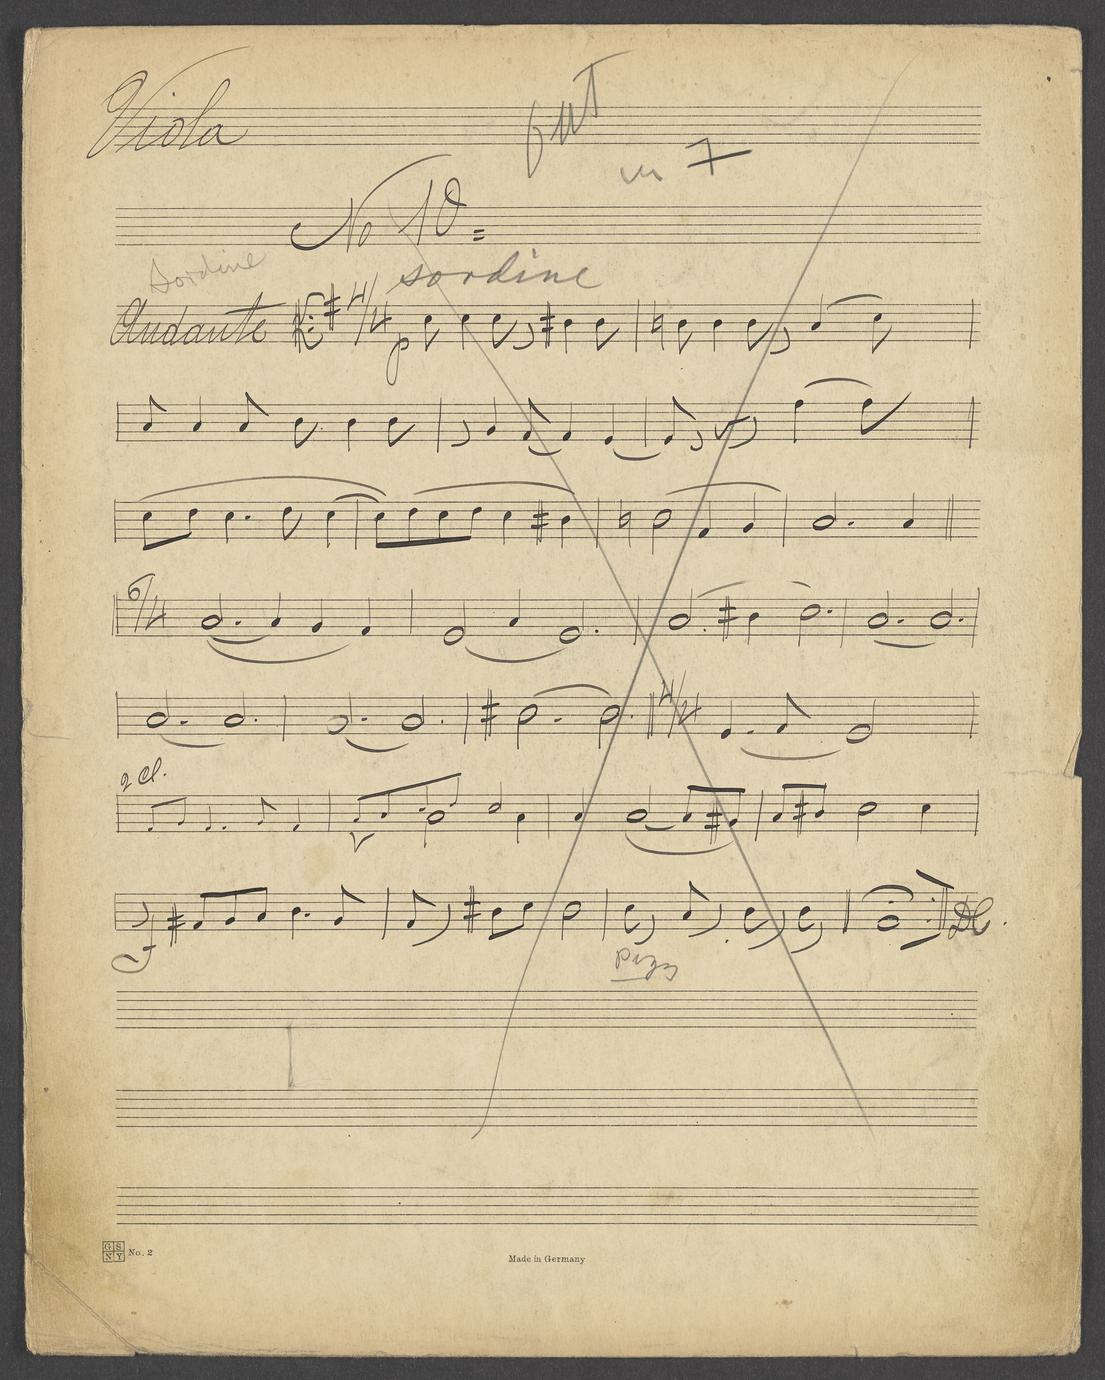 Viola
in 7
No 10
Sordine
sordine
Andante
4/4
p
6/4
4/4
2 Cl.
f
pizz
DC.
GS
NY
No. 2
Made in Germany